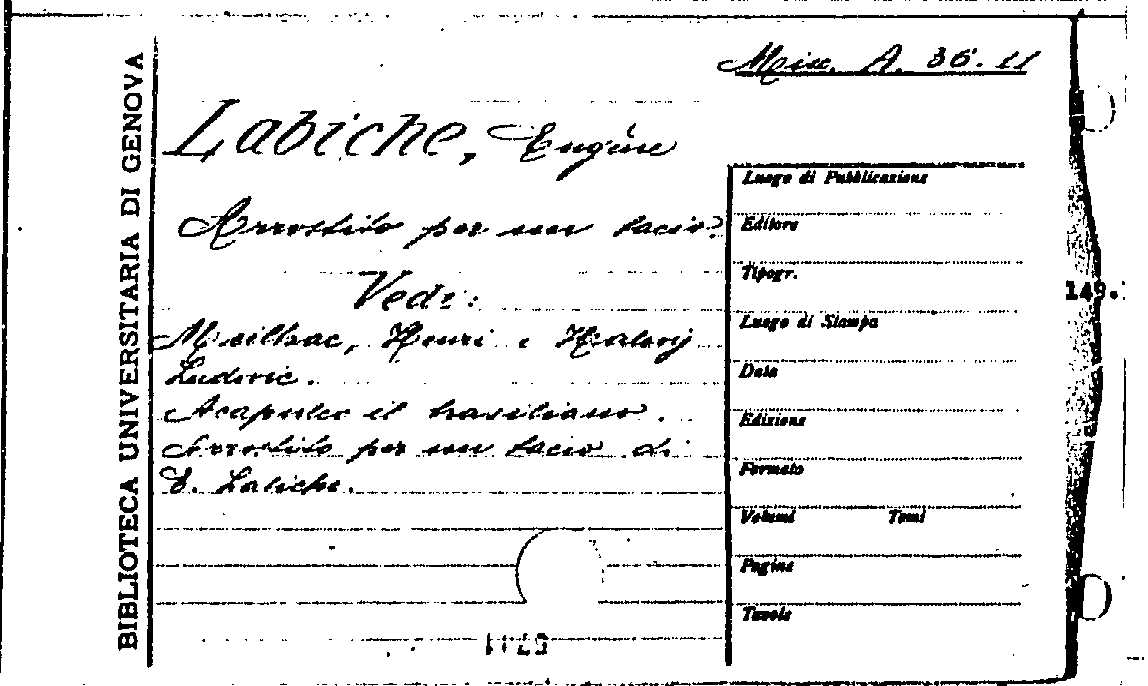 Misc. A. 36. 11
BIBLIOTECA UNIVERSITARIA DI GENOVA
Labiche, Eugéne
Arrostito per un bacio.
Vedi:
Meilhac, Henri e Halevy
Ludovic.
Acapulco il brasiliano.
Arrostito per un bacio di
E. Labiche.
Luogo di Pubblicazione
Editore
Tipogr.
Luogo di Stampa
Data
Edizione
Formato
Volumi Tomi
Pagine
Tavole
149.